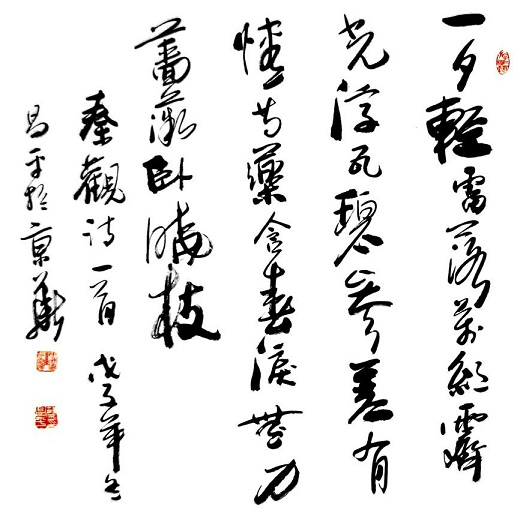 一夕輕雷落萬絲霽
光浮瓦碧參差有
情芍藥含春淚無力
薔薇卧曉枝
秦觀詩一首 戊子年冬
昌平於京華